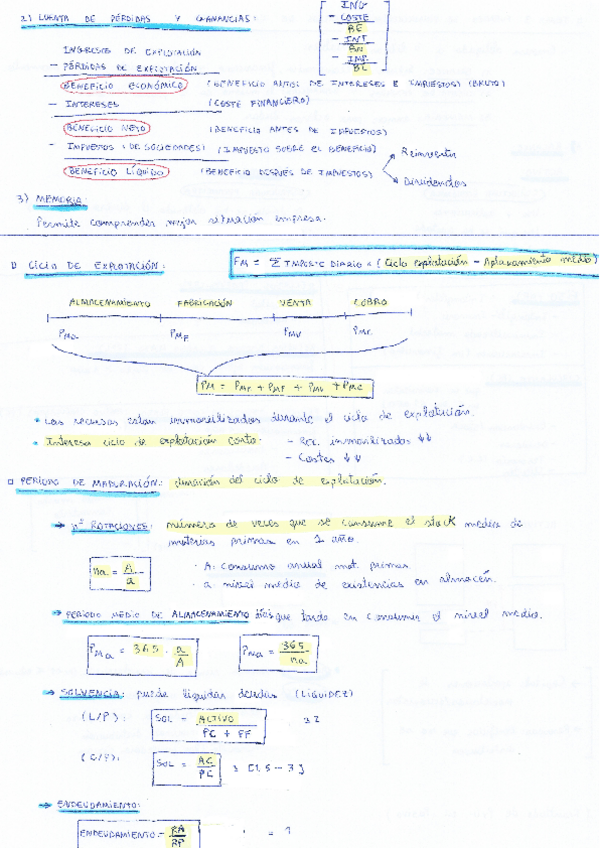 2) CUENTA DE PÉRDIDAS Y GANANCIAS:
ING
- COSTE
BE
- INT
BN
- IMP.
BL
INGRESOS DE EXPLOTACIÓN
- PÉRDIDAS DE EXPLOTACIÓN
BENEFICIO ECONÓMICO (BENEFICIO ANTES DE INTERESES E IMPUESTOS) (BRUTO)
- INTERESES (COSTE FINANCIERO)
BENEFICIO NETO (BENEFICIO ANTES DE IMPUESTOS)
- IMPUESTOS SOCIEDADES) (IMPUESTO SOBRE EL BENEFICIO)
BENEFICIO LÍQUIDO (BENEFICIO DESPUÉS DE IMPUESTOS)
Reinvertir
Dividendos
3) MEMORIA:
Permite comprender mejor situación empresa.
CICLO DE EXPLOTACIÓN:
FM = Σ IMPORTE DIARIO × (Ciclo explotación - Aplazamiento medio)
ALMACENAMIENTO FABRICACIÓN VENTA COBRO
PMa PMF PMV PMC
PM = PMa + PMF + PMV + PMC
• Los recursos están inmovilizados durante el ciclo de explotación.
• Interesa ciclo de explotación corto: - Rec. inmovilizados ↓↓
- Costes ↓↓
PERÍODO DE MADURACIÓN: duración del ciclo de explotación.
→ nº ROTACIONES: número de veces que se consume el stock medio de
materias primas en 1 año.
na = A/a
· A: consumo anual mat. primas.
· a nivel medio de existencias en almacén.
→ PERÍODO MEDIO DE ALMACENAMIENTO días que tarda en consumir el nivel medio.
PMa = 365 · a/A PMa = 365/na
→ SOLVENCIA: puede liquidar deudas (LIQUIDEZ)
(L/P): SOL = ACTIVO / PC + FF
(C/P): SOL = AC/PC [1,5 - 3]
→ ENDEUDAMIENTO:
ENDEUDAMIENTO = RA/RP = 1